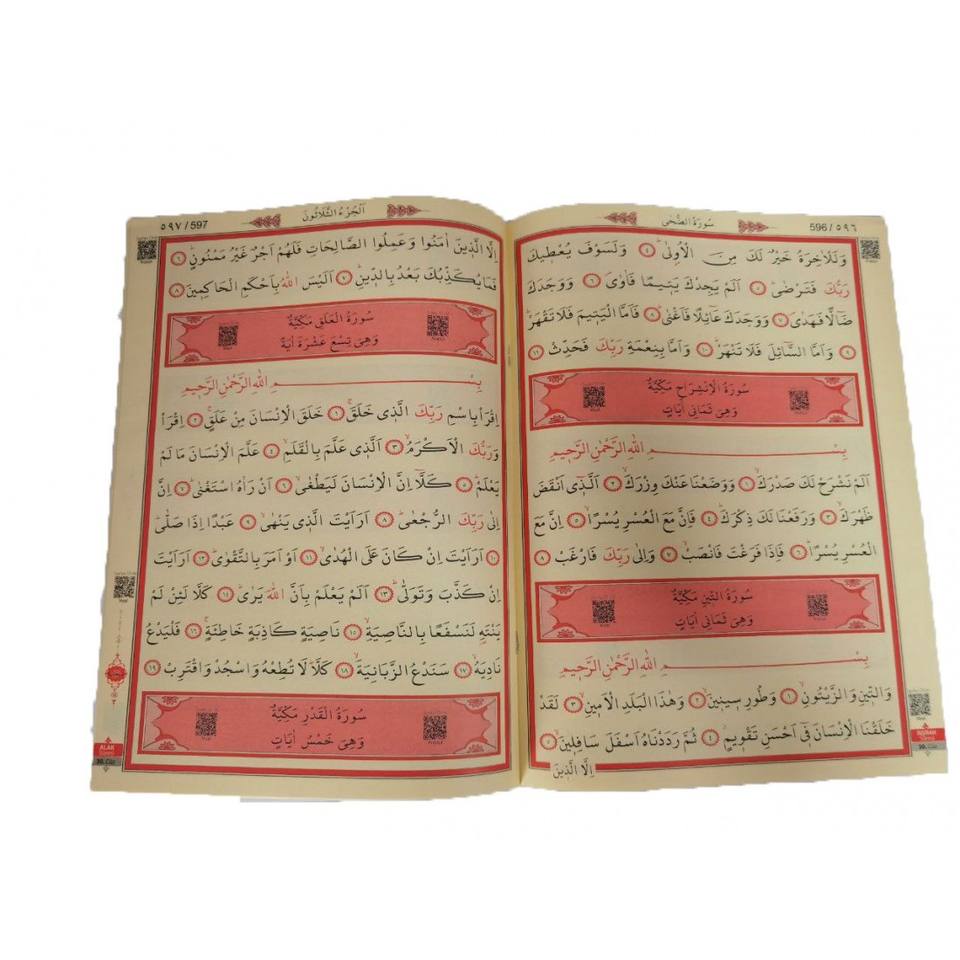 596/٥٩٦
سُورَةُ الضُّحٰى
وَلَلْاٰخِرَةُ خَيْرٌ لَكَ مِنَ الْاُولٰىۜ ﴿٤﴾ وَلَسَوْفَ يُعْطٖيكَ
رَبُّكَ فَتَرْضٰىۜ ﴿٥﴾ اَلَمْ يَجِدْكَ يَتٖيمًا فَاٰوٰىۖ ﴿٦﴾ وَوَجَدَكَ
ضَٓالًّا فَهَدٰىۖ ﴿٧﴾ وَوَجَدَكَ عَٓائِلًا فَاَغْنٰىۜ ﴿٨﴾ فَاَمَّا الْيَتٖيمَ فَلَا تَقْهَرْۜ
﴿٩﴾ وَاَمَّا السَّٓائِلَ فَلَا تَنْهَرْۜ ﴿١٠﴾ وَاَمَّا بِنِعْمَةِ رَبِّكَ فَحَدِّثْ ﴿١١﴾
سُورَةُ الْاِنْشِرَاحِ مَكِّيَّةٌ
وَهِىَ ثَمَانِى اٰيَاتٍ
بِسْمِ اللّٰهِ الرَّحْمٰنِ الرَّحٖيمِ
اَلَمْ نَشْرَحْ لَكَ صَدْرَكَۙ ﴿١﴾ وَوَضَعْنَا عَنْكَ وِزْرَكَۙ ﴿٢﴾ اَلَّذٖٓى اَنْقَضَ
ظَهْرَكَۙ ﴿٣﴾ وَرَفَعْنَا لَكَ ذِكْرَكَۜ ﴿٤﴾ فَاِنَّ مَعَ الْعُسْرِ يُسْرًاۙ ﴿٥﴾ اِنَّ مَعَ
الْعُسْرِ يُسْرًاۜ ﴿٦﴾ فَاِذَا فَرَغْتَ فَانْصَبْۙ ﴿٧﴾ وَاِلٰى رَبِّكَ فَارْغَبْ ﴿٨﴾
سُورَةُ التّٖينِ مَكِّيَّةٌ
وَهِىَ ثَمَانِى اٰيَاتٍ
بِسْمِ اللّٰهِ الرَّحْمٰنِ الرَّحٖيمِ
وَالتّٖينِ وَالزَّيْتُونِۙ ﴿١﴾ وَطُورِ سٖينٖينَۙ ﴿٢﴾ وَهٰذَا الْبَلَدِ الْاَمٖينِۙ ﴿٣﴾ لَقَدْ
خَلَقْنَا الْاِنْسَانَ فٖٓى اَحْسَنِ تَقْوٖيمٍۘ ﴿٤﴾ ثُمَّ رَدَدْنَاهُ اَسْفَلَ سَافِلٖينَۙ ﴿٥﴾
اِلَّا الَّذٖينَ
اَلْجُزْءُ الثَّلَاثُونَ
٥٩٧/597
اِلَّا الَّذٖينَ اٰمَنُوا وَعَمِلُوا الصَّالِحَاتِ فَلَهُمْ اَجْرٌ غَيْرُ مَمْنُونٍۜ ﴿٦﴾
فَمَا يُكَذِّبُكَ بَعْدُ بِالدّٖينِۜ ﴿٧﴾ اَلَيْسَ اللّٰهُ بِاَحْكَمِ الْحَاكِمٖينَ ﴿٨﴾
سُورَةُ الْعَلَقِ مَكِّيَّةٌ
وَهِىَ تِسْعَ عَشْرَةَ اٰيَةً
بِسْمِ اللّٰهِ الرَّحْمٰنِ الرَّحٖيمِ
اِقْرَأْ بِاسْمِ رَبِّكَ الَّذٖى خَلَقَۚ ﴿١﴾ خَلَقَ الْاِنْسَانَ مِنْ عَلَقٍۚ ﴿٢﴾ اِقْرَأْ
وَرَبُّكَ الْاَكْرَمُۙ ﴿٣﴾ اَلَّذٖى عَلَّمَ بِالْقَلَمِۙ ﴿٤﴾ عَلَّمَ الْاِنْسَانَ مَا لَمْ
يَعْلَمْۜ ﴿٥﴾ كَلَّٓا اِنَّ الْاِنْسَانَ لَيَطْغٰىۙ ﴿٦﴾ اَنْ رَاٰهُ اسْتَغْنٰىۜ ﴿٧﴾ اِنَّ
اِلٰى رَبِّكَ الرُّجْعٰىۜ ﴿٨﴾ اَرَاَيْتَ الَّذٖى يَنْهٰىۙ ﴿٩﴾ عَبْدًا اِذَا صَلّٰىۜ
﴿١٠﴾ اَرَاَيْتَ اِنْ كَانَ عَلَى الْهُدٰىۙ ﴿١١﴾ اَوْ اَمَرَ بِالتَّقْوٰىۜ ﴿١٢﴾ اَرَاَيْتَ
اِنْ كَذَّبَ وَتَوَلّٰىۜ ﴿١٣﴾ اَلَمْ يَعْلَمْ بِاَنَّ اللّٰهَ يَرٰىۜ ﴿١٤﴾ كَلَّا لَئِنْ لَمْ
يَنْتَهِ لَنَسْفَعًا بِالنَّاصِيَةِۙ ﴿١٥﴾ نَاصِيَةٍ كَاذِبَةٍ خَاطِئَةٍۚ ﴿١٦﴾ فَلْيَدْعُ
نَادِيَهُۙ ﴿١٧﴾ سَنَدْعُ الزَّبَانِيَةَۙ ﴿١٨﴾ كَلَّاۜ لَا تُطِعْهُ وَاسْجُدْ وَاقْتَرِبْ ﴿١٩﴾
سُورَةُ الْقَدْرِ مَكِّيَّةٌ
وَهِىَ خَمْسُ اٰيَاتٍ
ALAK